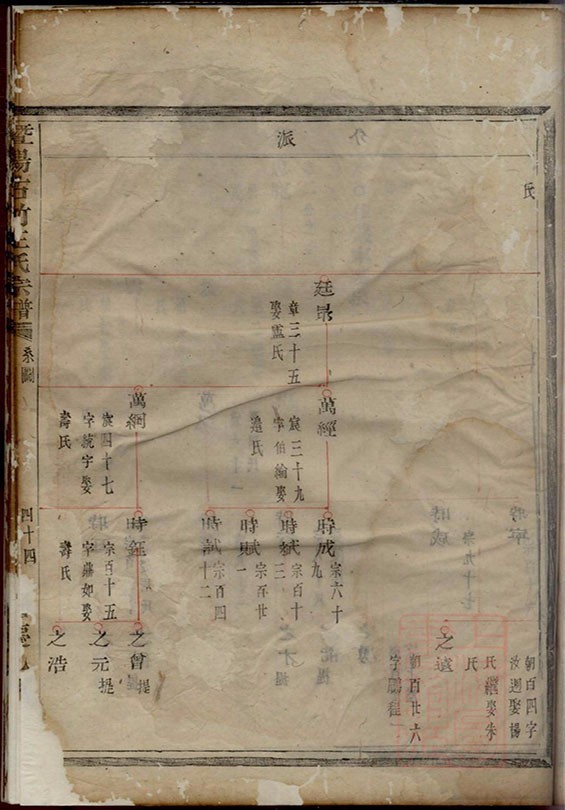 派
氏
廷昂
章三十五
娶盧氏
萬經
宸三十九
字伯綸娶
氏
萬綱
宸四十七
字統宇娶
壽氏
時成
宗六十
九
時斌
宗百十
三
時賦
宗百廿
一
時試
宗百四
十二
時鈺
宗百十五
字 如娶
壽氏
朝百四字
汝迴娶楊
氏繼娶朱
氏
之遠
朝百廿六
字鵬程
之曾
提
之元
提
之浩
暨陽古竹王氏宗譜
系圖
四十四